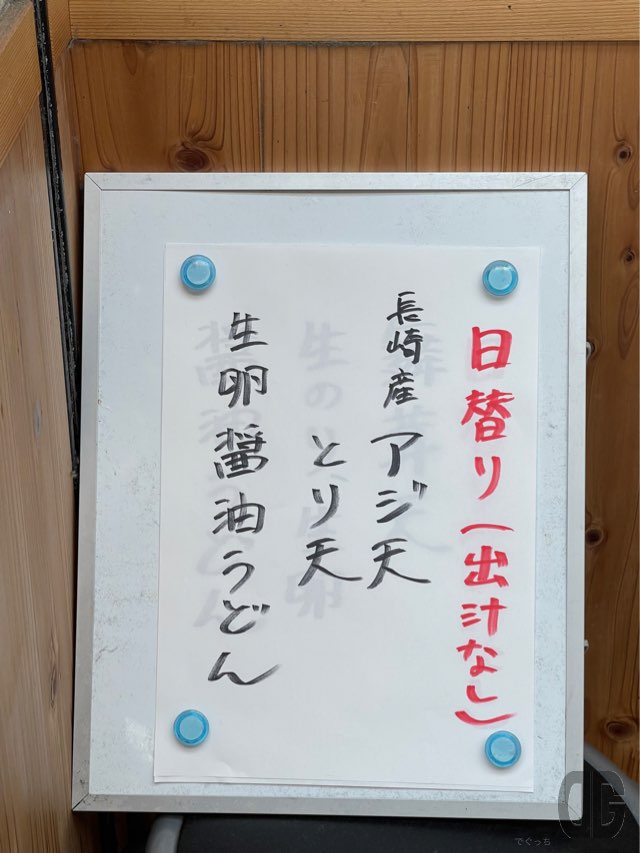 日替り(出汁なし)
長崎産アジ天
とり天
生卵醤油うどん
でぐっち